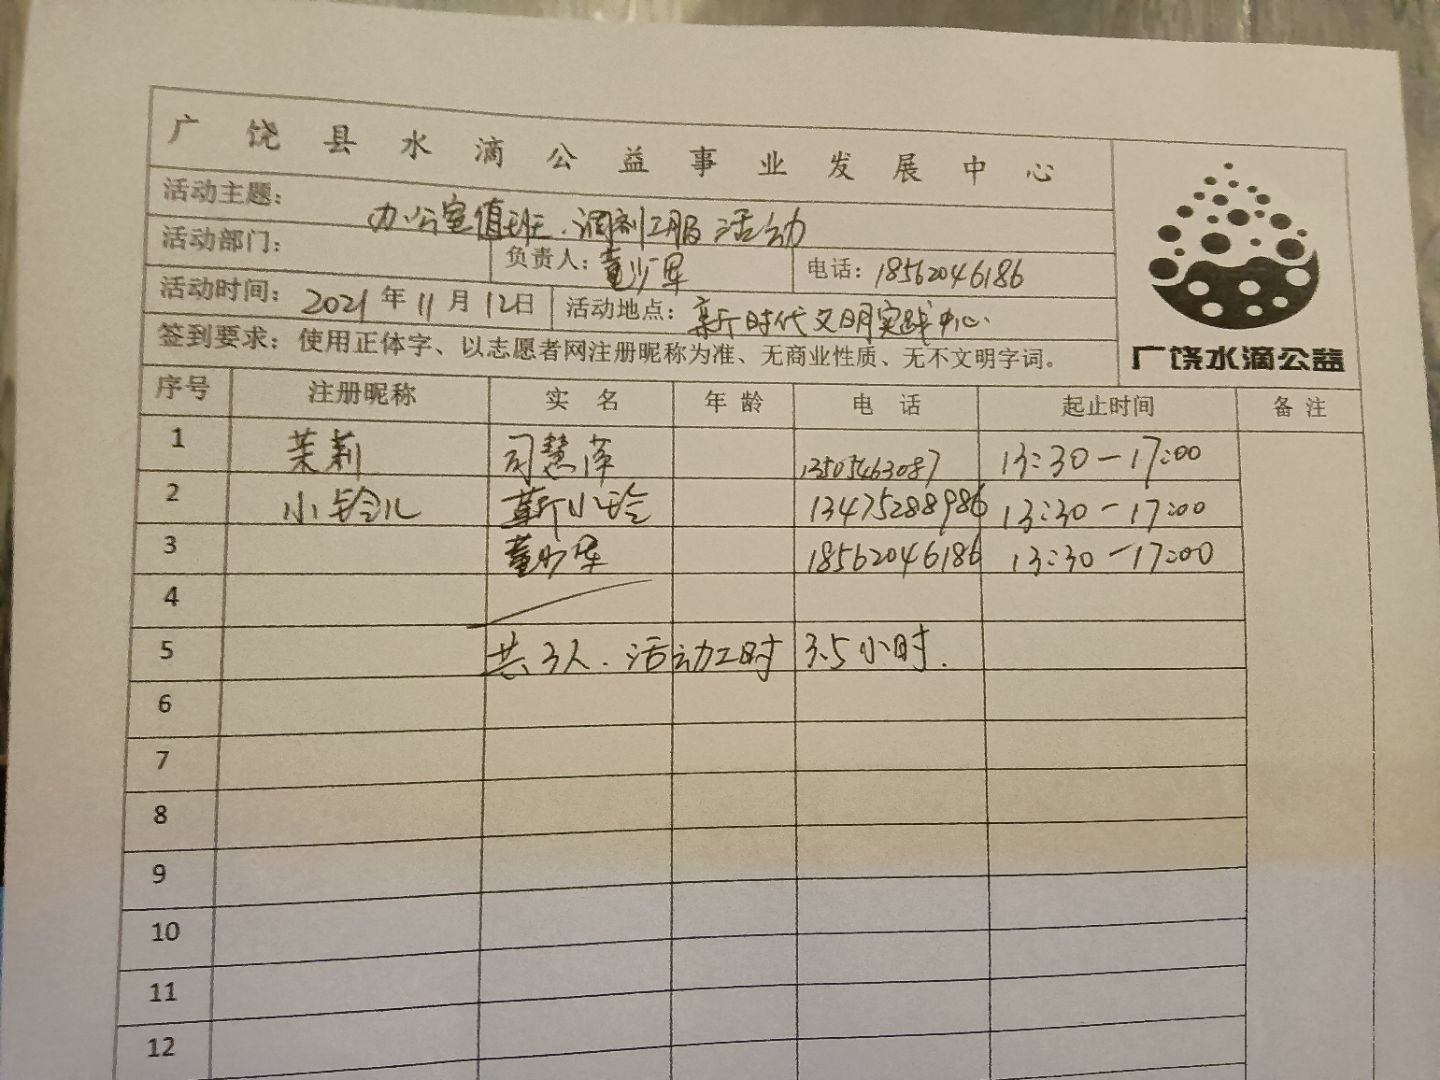 广饶县水滴公益事业发展中心
活动主题： 办公室值班、调剂工服活动
活动部门： 负责人：董少军 电话：18562046186
活动时间：2021年11月12日 活动地点：新时代文明实践中心.
签到要求：使用正体字、以志愿者网注册昵称为准、无商业性质、无不文明字词。
广饶水滴公益
序号 注册昵称 实名 年龄 电话 起止时间 备注
1 茉莉 司慧萍 13505463087 13:30-17:00
2 小铃儿 靳小玲 13475288986 13:30-17:00
3 董少军 18562046186 13:30-17:00
4
5 共3人.活动工时3.5小时.
6
7
8
9
10
11
12